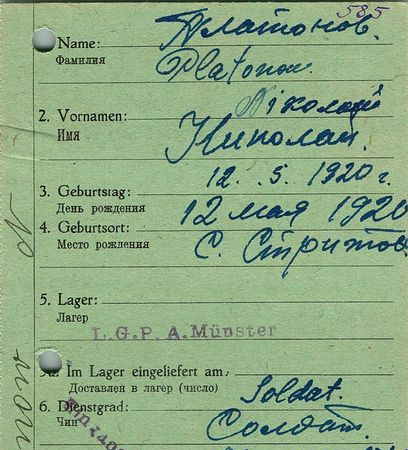 585
Name: Платонов.
Фамилия Platonow.
Nikolaij
2. Vornamen: Николай.
Имя
12. 5. 1920 г.
3. Geburtstag: 12 мая 1920
День рождения
4. Geburtsort: С. Стритов
Место рождения
5. Lager:
Лагер
L.G.P.A. Münster
5a. Im Lager eingeliefert am:
Доставлен в лагер (число) Soldat.
6. Dienstgrad: Солдат.
Чин